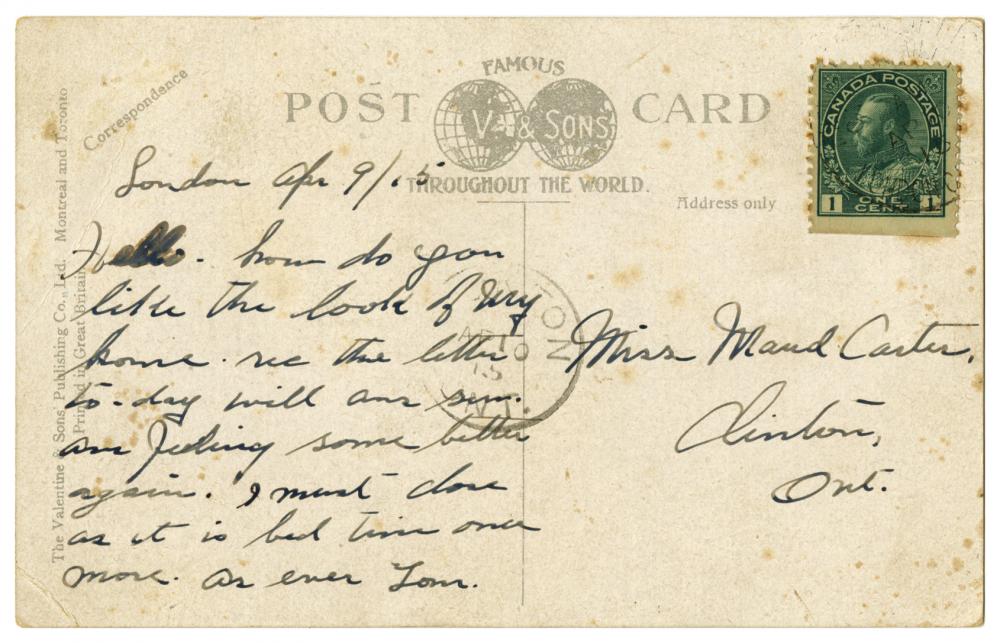 FAMOUS
POST CARD
V. & SONS
THROUGHOUT THE WORLD.
Correspondence
Address only
The Valentine & Sons' Publishing Co., Ltd. Montreal and Toronto
Printed in Great Britain.
CANADA POSTAGE
1 ONE CENT 1
London Apr 9/15
Hello. how do you
like the look of my
home. rec the letter
to-day will ans sun.
am feeling some better
again. I must close
as it is bed time once
more. As ever Tom.
Miss Maud Carter,
Clinton,
Ont.